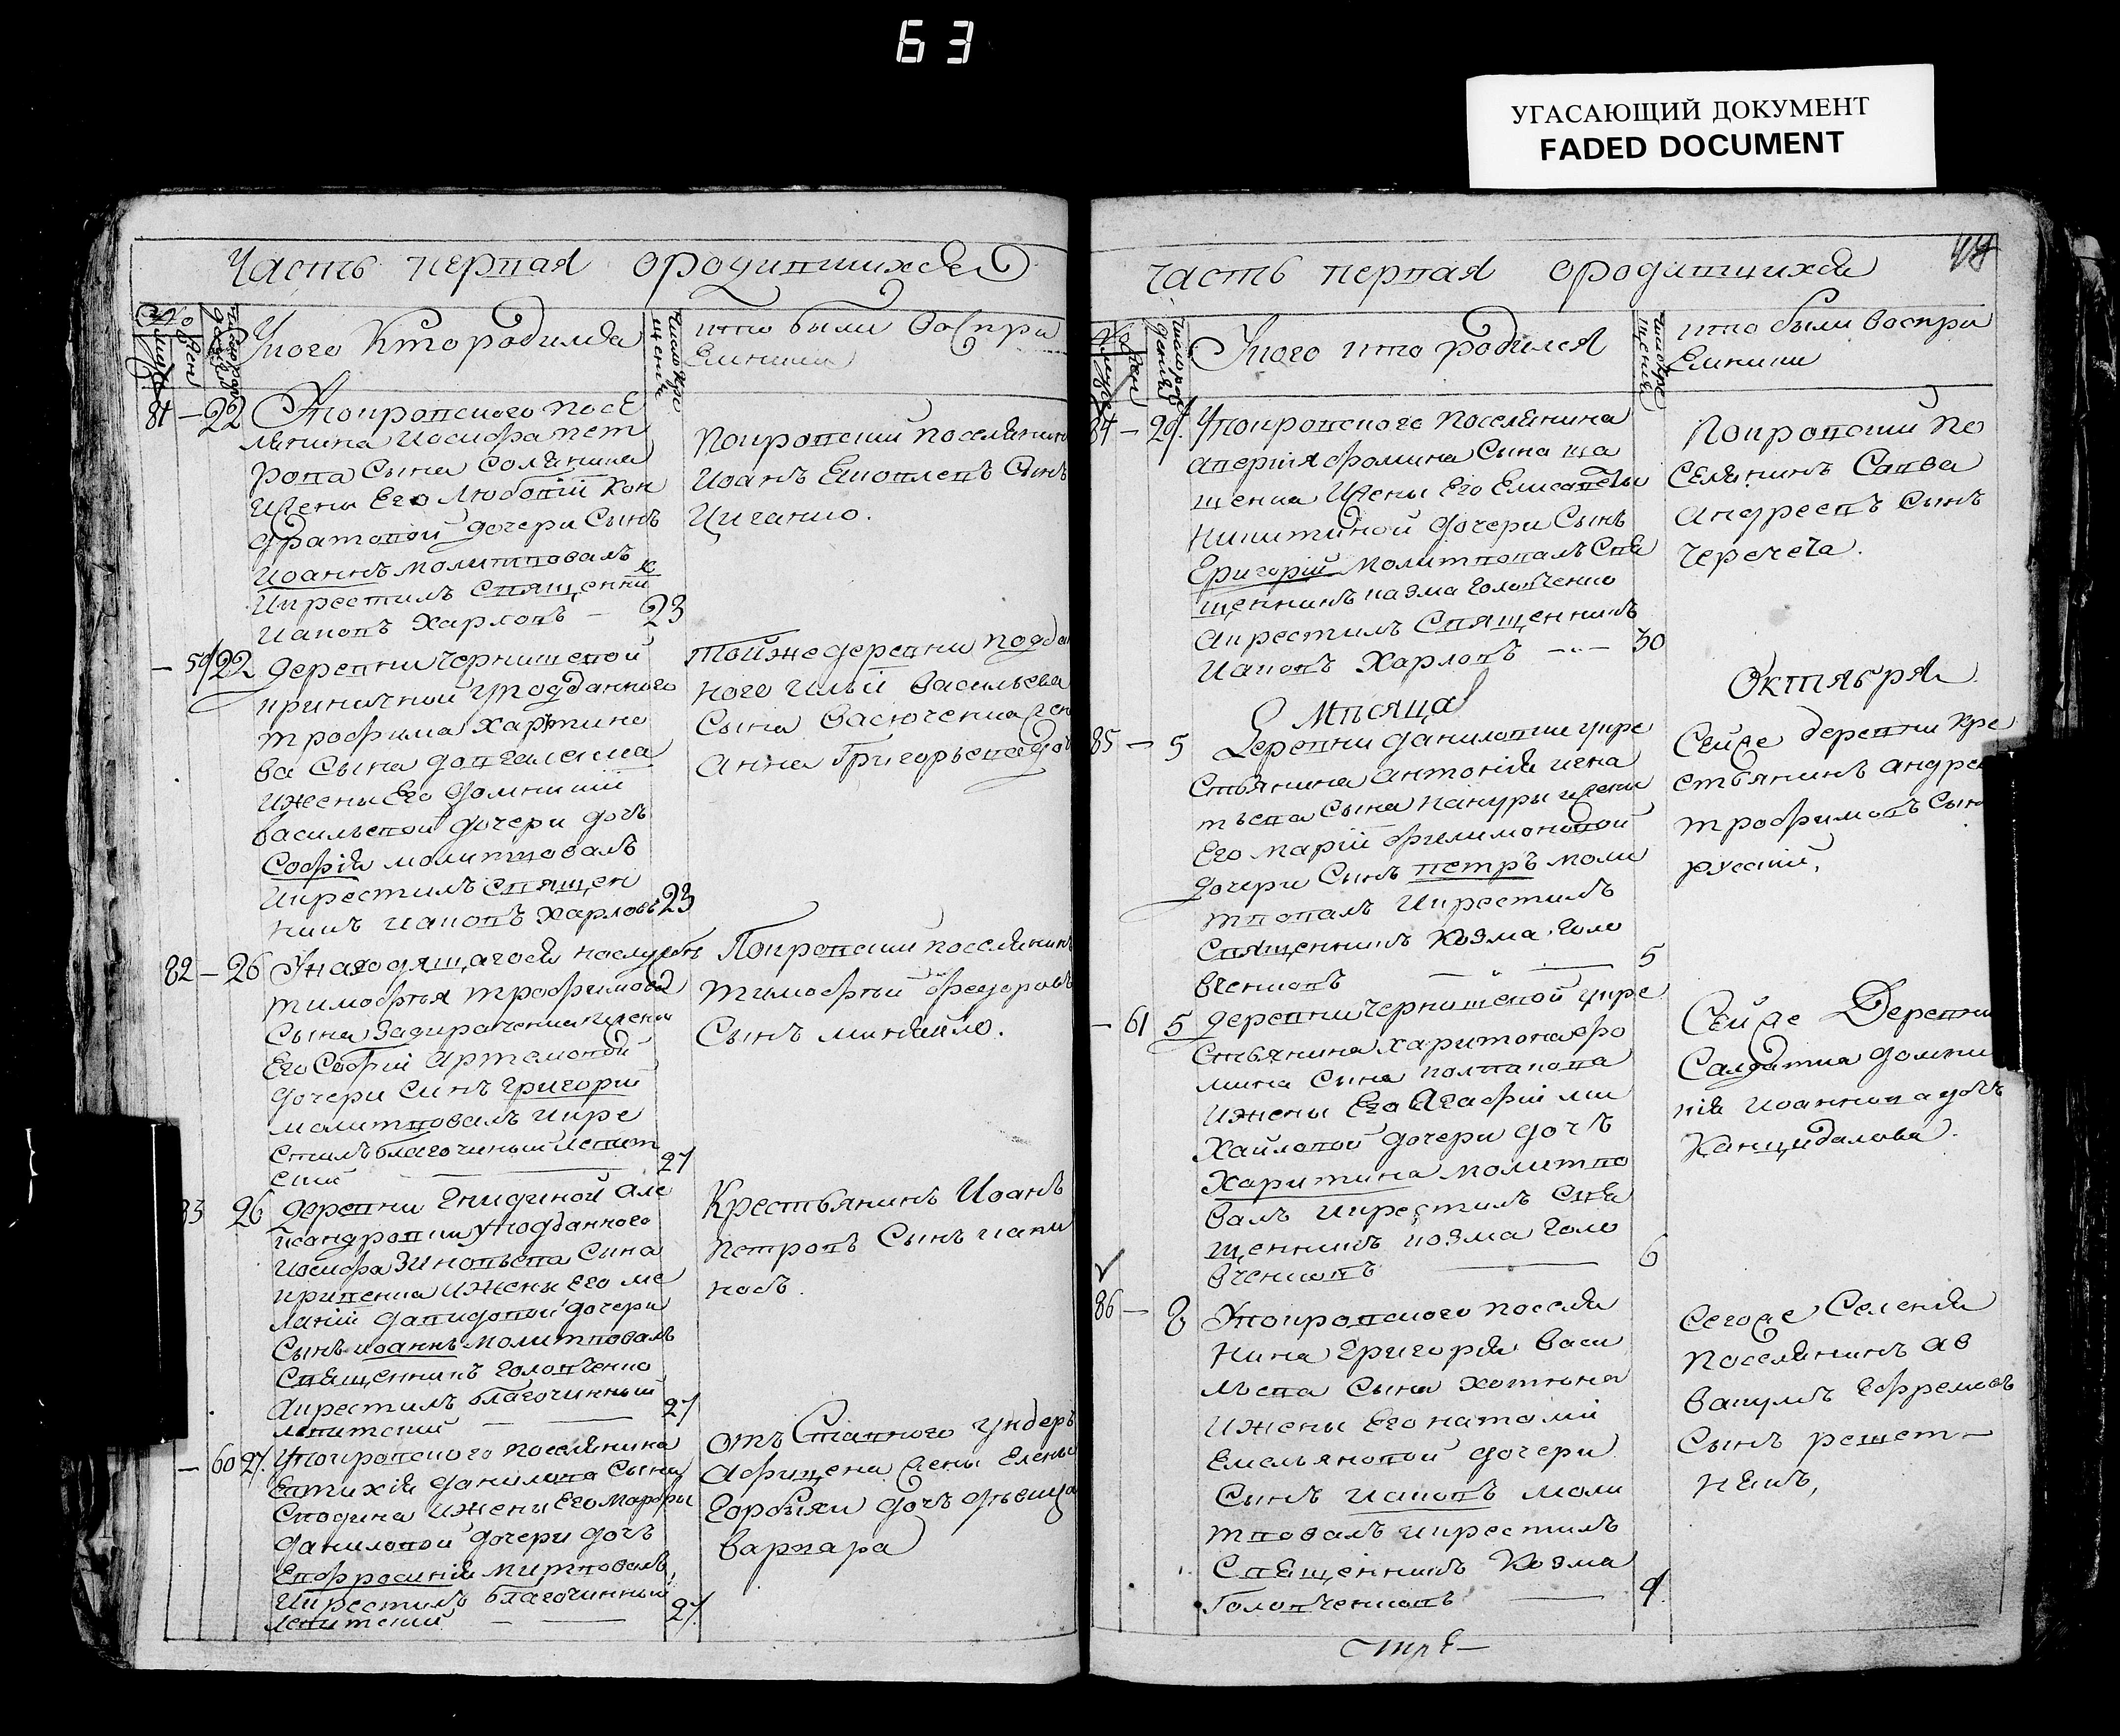 63
УГАСАЮЩИЙ ДОКУМЕНТ
FADED DOCUMENT
Часть первая ородившихся
Укого Кто родился
кто были Воспри
Емники
81 — 22 Упокровского посе
лянина иосифа пет
рова Сына Солянина
Ижены Его Любовій Кон
дратовой дочери Сынъ
иоаннъ молитвовалъ
Икрестилъ Священникъ
иаковъ Харловъ — 23
покровский поселянинъ
иоанъ Яковлевъ Сынъ
Циганко.
— 59 22 деревни Чернишевой
приказной уподданного
трофима Харитино
ва Сына довгаленка
Ижены Его домникий
васильевой дочери дочь
Софія молитвовалъ
Икрестилъ Священ
никъ иаковъ Харловъ 23
тойже деревни подда
ного ильи васильева
Сына Васюченка жена
анна Григорьева дочь
82 — 26 Унаходящагося наслужбе
тимофея трофимова
Сына Задираченка ижены
Его Софій Артемовой
дочери Синъ григорий
молитвовалъ икре
стилъ благочиный левит
ский — 27
Покровский поселянинъ
тимофый федоровъ
Сынъ михайло.
83 26 деревни Гнидиной але
ксандровки уподданного
иосифа Зиновьева Сина
кривенка ижены его ме
ланий давидовой дочери
Сынъ иоаннъ молитвовалъ
Священникъ головченко
акрестилъ благочинный
левитский — 27
Крестьянинъ Иоанъ
петровъ Сынъ
— 60 27. Упокровского поселянина
Евтихія данилова Сына
Сподина ижены Его марфы
даниловой дочери дочь
Евфросинія
Икрестилъ благочинный
левитский — 27
отъ Ставного ундеръ
афицера жены Елены
Горбыхи дочь девица
варвара
часть первая ородившихся
44
Укого кто родился
кто были воспри
Емники
84 — 29. Упокровского поселянина
аверкія фомина Сына ка
щенка Ижены Его Елисаветы
Никитиной дочери Сынъ
Григорій молитвовалъ Свя
щенникъ казма головченко
акрестилъ Священникъ
иаковъ Харловъ — 30
Покровский по
Селянинъ Савва
андреевъ Сынъ
Черечеча.
Мѣсяца
Октября
85 — 5 Деревни даниловки укре
стьянина антонія игна
тьева Сына качуры ижени
Его марій филимоновой
дочери Сынъ петръ моли
твовалъ Икрестилъ
Священникъ Козма голо
вченковъ — 5
Сейже деревни кре
стьянинъ андрей
трофимовъ Сынъ
русский,
— 61 5 деревни Чернишевой укре
стьянина харитона фо
мина Сына
Ижены Его Агафій ми
хайловой дочери дочь
Харитина молитво
валъ икрестилъ Свя
щенникъ козма голо
вченковъ — 6
Сейже Деревни
Салдатка домни
кія иоаннова дочь
86 — 8 Упокровского поселя
нина григорія васи
льева Сына хотюна
Ижены Его наталій
Емельяновой дочери
Сынъ иаковъ моли
твовалъ икрестилъ
Священникъ Козма
Головченковъ — 9.
Сегоже Селенія
поселянинъ ав
вакумъ Ефремовъ
Сынъ решет—
някъ,